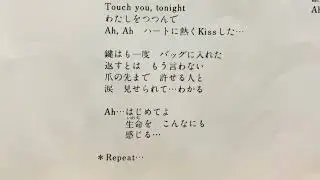 Touch you, tonight
わたしをつつんで
Ah, Ah　ハートに熱くKissした…
鍵はも一度　バッグに入れた
返すとは　もう言わない
爪の先まで　許せる人と
涙　見せられて…わかる
Ah…はじめてよ
生命を　こんなにも
感じる…
＊Repeat…